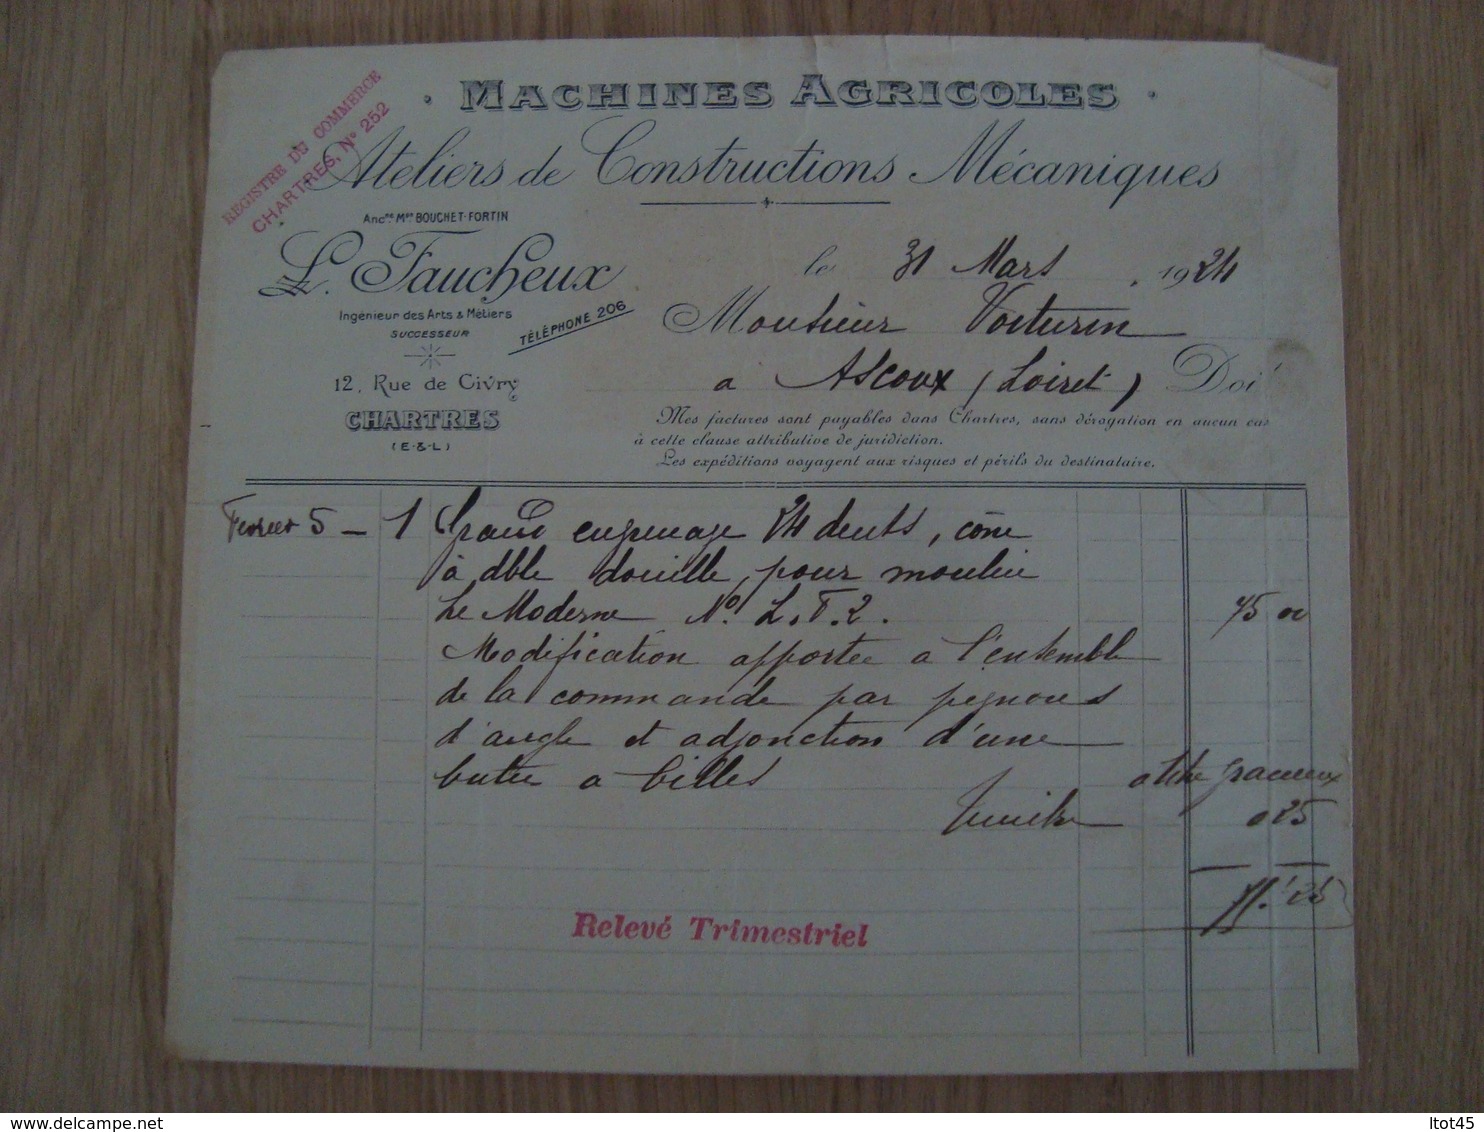 MACHINES AGRICOLES
REGISTRE DU COMMERCE
CHARTRES, N° 252
Ateliers de Constructions Mécaniques
Ancne Mon BOUCHET-FORTIN
L. Faucheux
Ingénieur des Arts & Métiers
SUCCESSEUR
TÉLÉPHONE 206
12, Rue de Civry
CHARTRES
(E-&-L)
le 31 Mars 1924
Monsieur Voiturin
à Ascoux (Loiret) Doit
Mes factures sont payables dans Chartres, sans dérogation en aucun cas
à cette clause attributive de juridiction.
Les expéditions voyagent aux risques et périls du destinataire.
Fevrier 5 - 1 Grand engrenage 24 dents, cône
à dble douille, pour moulin
Le Moderne N° L.F.2. 75 00
Modification apportée a l'ensemble
de la commande par pignons
d'angle et adjonction d'une
butée a billes à titre gracieux
Timbre 0 25
75.25
Relevé Trimestriel
ltot45